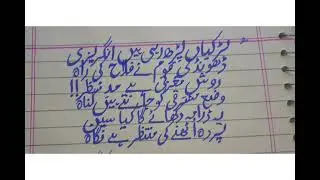 لڑکیاں پڑھ رہی ہیں انگریزی
ڈھونڈ لی قوم نے فلاح کی راہ
روش مغربی ہے مدنظر!!
وضع مشرقی کو جانتے ہیں گناہ
یہ ڈراما دکھائے گا کیا سین
پردہ اٹھنے کی منتظر ہے نگاہ